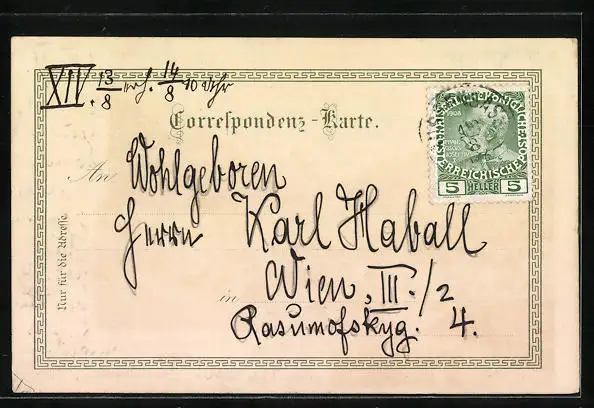 XIV. 13/8 erh. 14/8 10 Uhr
Correspondenz-Karte.
KAISERLICHE KÖNIGLICHE
ÖSTERREICHISCHE
1908
5 HELLER 5
An Wohlgeboren
Herrn Karl Haball
in Wien, III./2
Rasumofskyg. 4.
Nur für die Adresse.